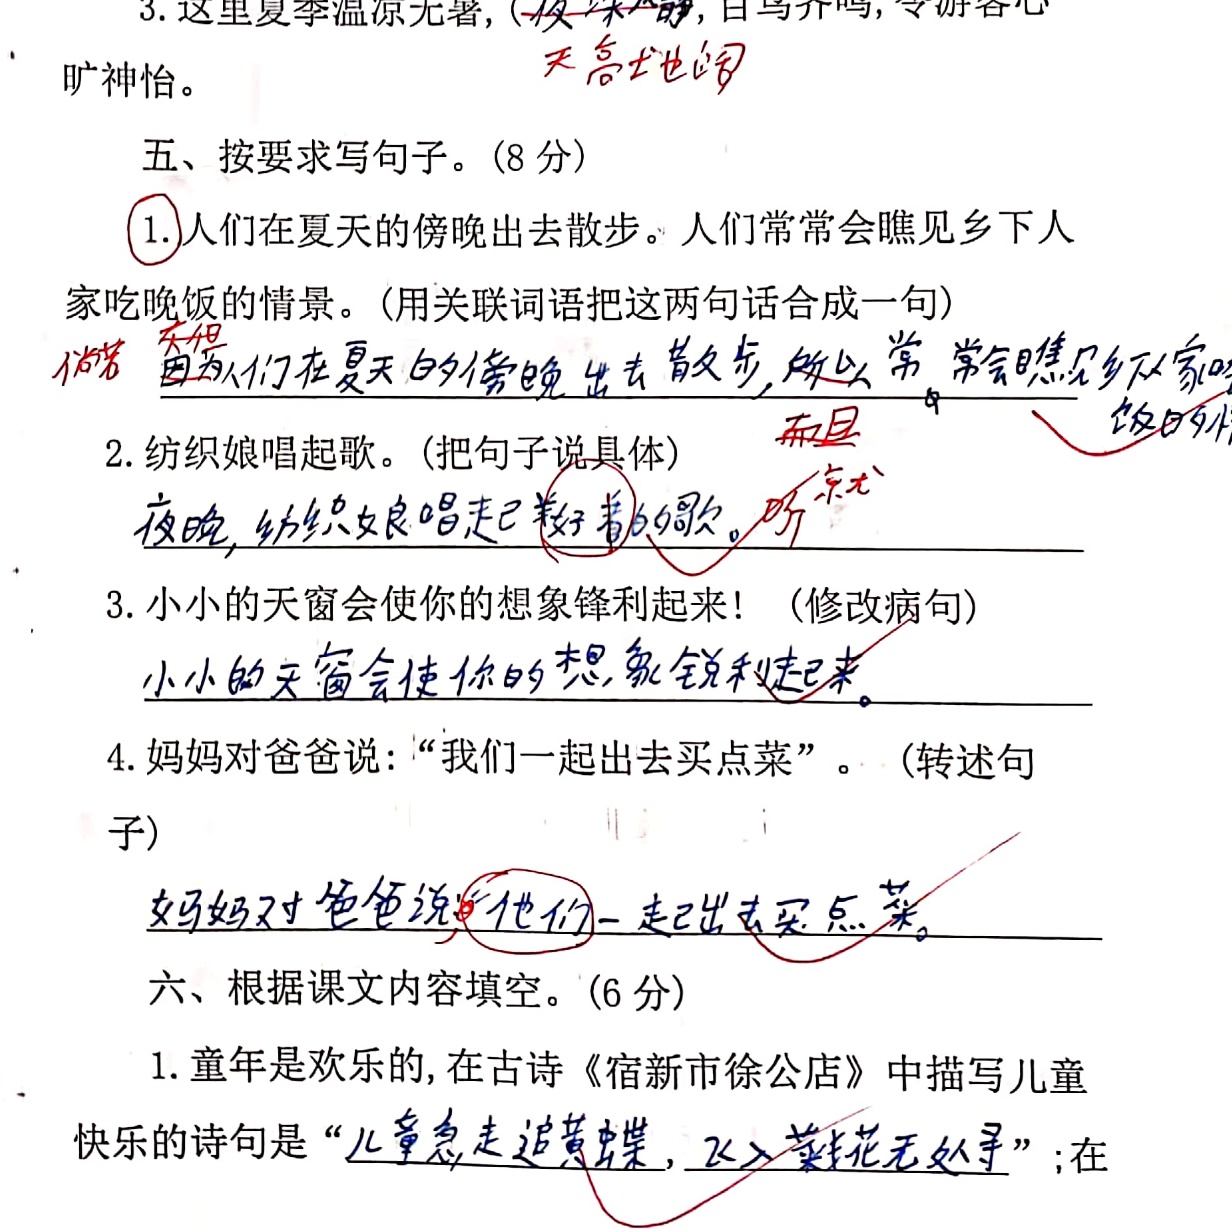 3.这里夏季温凉无暑,(夜深人静,百鸟齐鸣,令游客心
天高地阔
旷神怡。
五、按要求写句子。(8分)
1.人们在夏天的傍晚出去散步。人们常常会瞧见乡下人
家吃晚饭的情景。(用关联词语把这两句话合成一句)
倘若 不但
因为人们在夏天的傍晚出去散步,所以常常会瞧见乡下人家吃
饭的情
而且
2.纺织娘唱起歌。(把句子说具体)
就
夜晚,纺织娘唱起已好着的歌。听
3.小小的天窗会使你的想象锋利起来! (修改病句)
小小的天窗会使你的想象锐利起来。
4.妈妈对爸爸说:“我们一起出去买点菜”。 (转述句
子)
妈妈对爸爸说,他们一起出去买点菜。
六、根据课文内容填空。(6分)
1.童年是欢乐的,在古诗《宿新市徐公店》中描写儿童
快乐的诗句是“儿童急走追黄蝶,飞入菜花无处寻”;在